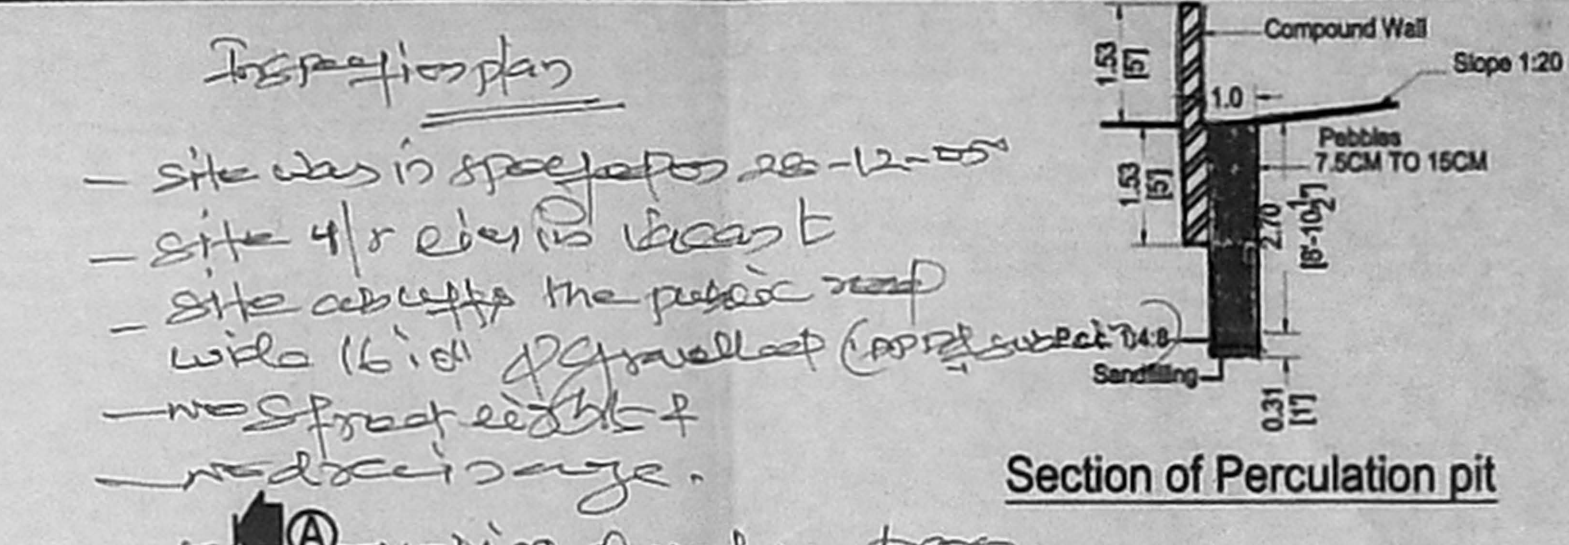 Inspection plan
- site was inspected on 28-12-05
- site u/r is vacant
- site abutts the public road
wide 16'.0" & gravelled (
- no street light &
- no drainage.
A
Compound Wall
Slope 1:20
1.53
[5']
1.0
Pebbles
7.5CM TO 15CM
1.53
[5']
2.70
[8'-10½"]
1:4:8
Sandfilling
0.31
[1']
Section of Perculation pit